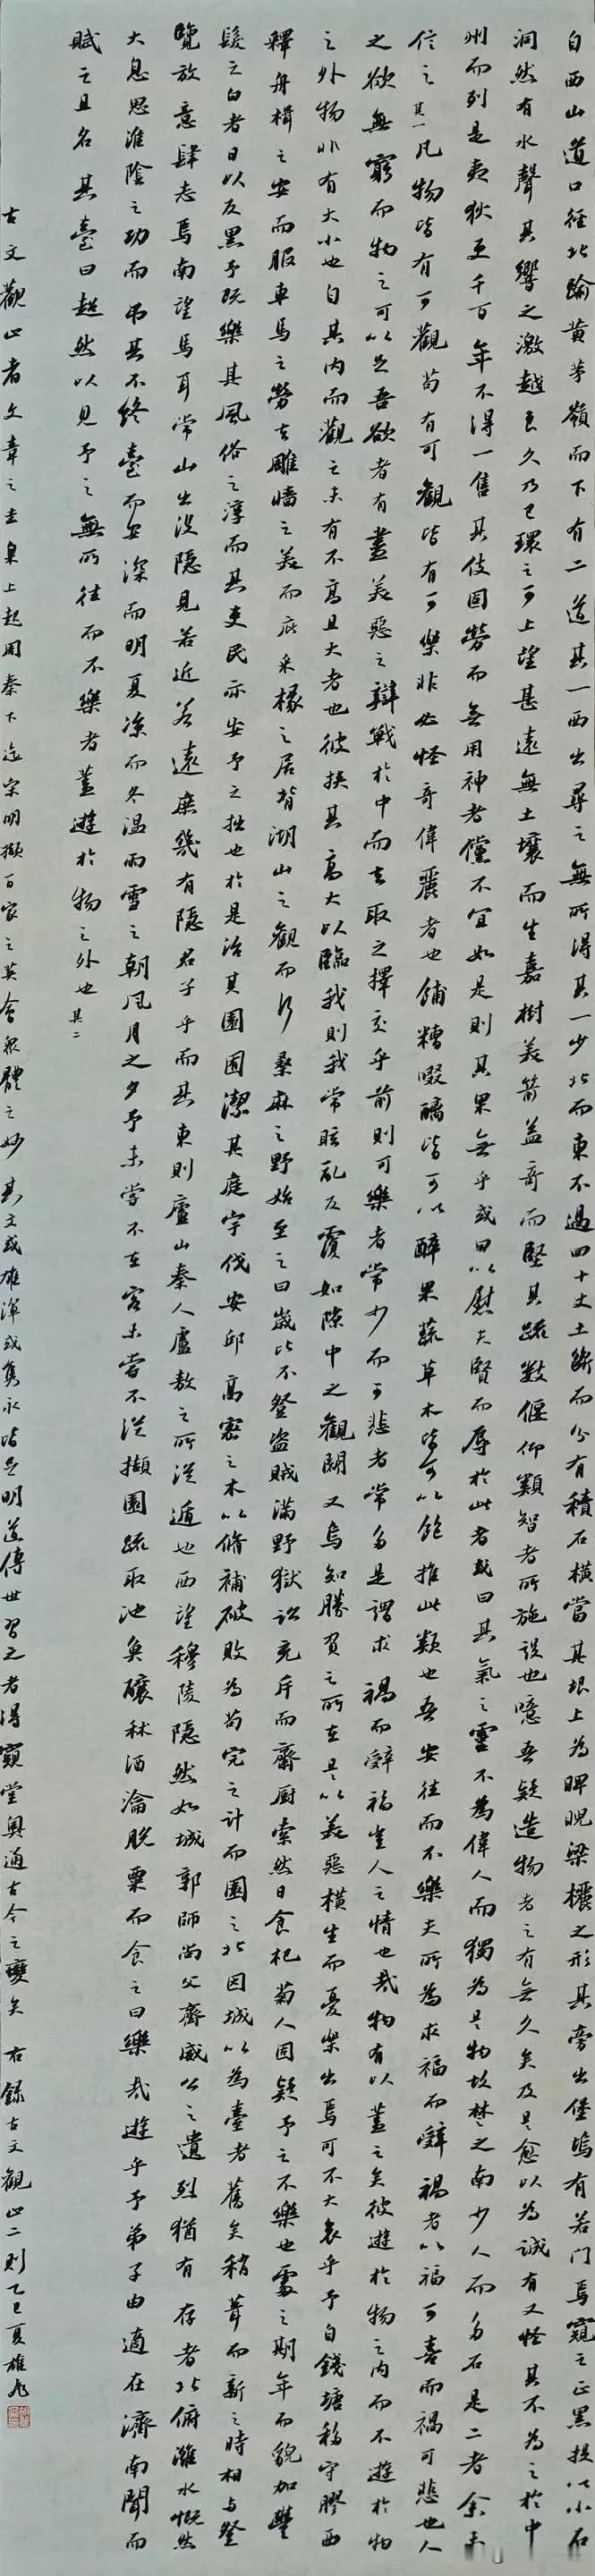 自西山道口徑北踰黃茅嶺而下有二道其一西出尋之無所得其一少北而東不過四十丈土斷而分有積石橫當其垠上為睥睨梁欐之形其旁出堡塢有若門焉窺之正黑投以小石
洞然有水聲其響之激越良久乃已環之可上望甚遠無土壤而生嘉樹美箭益奇而堅其疏數偃仰類智者所施設也噫吾疑造物者之有無久矣及是愈以為誠有又怪其不為之於中
州而列是夷狄更千百年不得一售其伎固勞而無用神者儻不宜如是則其果無乎或曰以慰夫賢而辱於此者或曰其氣之靈不為偉人而獨為是物故楚之南少人而多石是二者余未
信之其一凡物皆有可觀苟有可觀皆有可樂非必怪奇偉麗者也餔糟啜醨皆可以醉果蔬草木皆可以飽推此類也吾安往而不樂夫所為求福而辭禍者以福可喜而禍可悲也人
之欲無窮而物之可以足吾欲者有盡美惡之辯戰於中而去取之擇交乎前則可樂者常少而可悲者常多是謂求禍而辭福豈人之情也哉物有以蓋之矣彼遊於物之內而不遊於物
之外物非有大小也自其內而觀之未有不高且大者也彼挾其高大以臨我則我常眩亂反覆如隙中之觀鬭又烏知勝負之所在是以美惡橫生而憂樂出焉可不大哀乎予自錢塘移守膠西
釋舟楫之安而服車馬之勞去雕牆之美而庇采椽之居背湖山之觀而行桑麻之野始至之日歲比不登盜賊滿野獄訟充斥而齋廚索然日食杞菊人固疑予之不樂也處之期年而貌加豐
髮之白者日以反黑予既樂其風俗之淳而其吏民亦安予之拙也於是治其園囿潔其庭宇伐安邱高密之木以脩補破敗為苟完之計而園之北因城以為臺者舊矣稍葺而新之時相與登
覽放意肆志焉南望馬耳常山出沒隱見若近若遠庶幾有隱君子乎而其東則廬山秦人盧敖之所從遁也西望穆陵隱然如城郭師尚父齊威公之遺烈猶有存者北俯濰水慨然
大息思淮陰之功而弔其不終臺而安深而明夏涼而冬溫雨雪之朝風月之夕予未嘗不在客未嘗不從擷園蔬取池魚釀秫酒瀹脫粟而食之曰樂哉遊乎予弟子由適在濟南聞而
賦之且名其臺曰超然以見予之無所往而不樂者蓋遊於物之外也其二
古文觀止者文章之圭臬上起周秦下迄宋明擷百家之英會眾體之妙其文或雄渾或雋永皆足明道傳世習之者得窺堂奧通古今之變矣右錄古文觀止二則乙巳夏雄飛